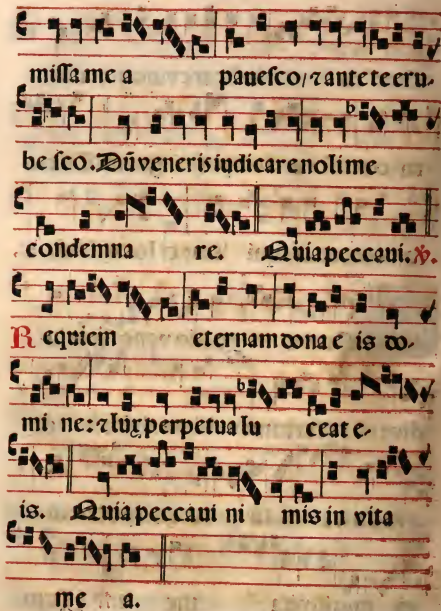 missa me a pauesco/ ⁊ ante te eru-
be sco. Dū veneris iudicare noli me
condemna re. Quia peccaui. ℣.
R equiem eternam dona e is do-
mi ne: ⁊ lux perpetua lu ceat e-
is. Quia peccaui ni mis in vita
me a.